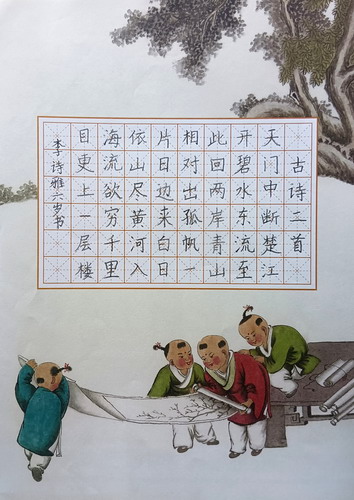 古诗二首
天门中断楚江
开碧水东流至
此回两岸青山
相对出孤帆一
片日边来白日
依山尽黄河入
海流欲穷千里
目更上一层楼
李诗雅六岁书